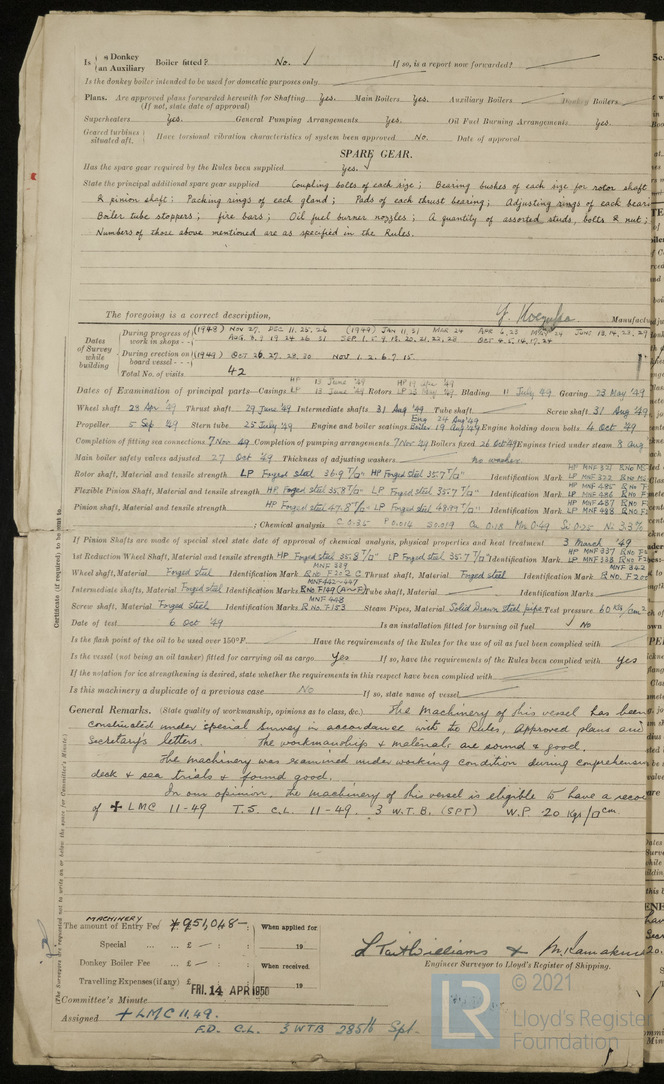 Is { a Donkey / (an Auxiliary } Boiler fitted? No. If so, is a report now forwarded?
Is the donkey boiler intended to be used for domestic purposes only
Plans. Are approved plans forwarded herewith for Shafting Yes. Main Boilers Yes. Auxiliary Boilers Donkey Boilers
(If not, state date of approval)
Superheaters Yes. General Pumping Arrangements Yes. Oil Fuel Burning Arrangements Yes.
Geared turbines situated aft. } Have torsional vibration characteristics of system been approved No. Date of approval
SPARE GEAR.
Has the spare gear required by the Rules been supplied Yes.
State the principal additional spare gear supplied Coupling bolts of each size; Bearing bushes of each size for rotor shaft
& pinion shaft; Packing rings of each gland; Pads of each thrust bearing; Adjusting rings of each bear
Boiler tube stoppers; fire bars; Oil fuel burner nozzles; A quantity of assorted studs, bolts & nut;
Numbers of those above mentioned are as specified in the Rules.
The foregoing is a correct description,
Manufactu
Dates of Survey while building
During progress of work in shops - - (1948) Nov 27, Dec 11, 25, 26 (1949) Jan 11, 31 Mar 24 Apr 6, 23 May 24 June 13, 14, 23, 29
Aug 3, 9, 19 24 26 31 Sep 1, 5, 9, 13, 20, 21, 22, 28 Oct 4, 5, 14, 17, 24
During erection on board vessel - - - (1949) Oct 26, 27, 28, 30 Nov 1, 2, 6, 7, 15
Total No. of visits 42
Dates of Examination of principal parts—Casings HP 13 June '49 LP 13 June '49 Rotors HP 19 Apr '49 LP 23 May '49 Blading 11 July 49 Gearing 23 May '49
Wheel shaft 23 Apr '49 Thrust shaft 29 June '49 Intermediate shafts 31 Aug '49 Tube shaft Screw shaft 31 Aug '49
Propeller 5 Sep '49 Stern tube 25 July '49 Engine and boiler seatings Eng 24 Aug '49 Boiler 19 Aug '49 Engine holding down bolts 4 Oct '49
Completion of fitting sea connections 7 Nov 49 Completion of pumping arrangements 7 Nov 49 Boilers fixed 26 Oct 49 Engines tried under steam 8 Aug
Main boiler safety valves adjusted 27 Oct '49 Thickness of adjusting washers no washer.
Rotor shaft, Material and tensile strength LP Forged steel 36.9 T/□" HP Forged steel 35.7 T/□" Identification Mark HP MNF 321 LP MNF 322
Flexible Pinion Shaft, Material and tensile strength HP Forged steel 35.8 T/□" LP Forged steel 35.7 T/□" Identification Mark HP MNF 485 LP MNF 486
Pinion shaft, Material and tensile strength HP Forged steel 47.8 T/□" LP Forged steel 48.19 T/□" Identification Mark HP MNF 487 LP MNF 488
; Chemical analysis C 0.35 P 0.014 S 0.019 Cu 0.18 Mn 0.49 Si 0.25 Ni 3.3%
If Pinion Shafts are made of special steel state date of approval of chemical analysis, physical properties and heat treatment 3 March '49
1st Reduction Wheel Shaft, Material and tensile strength HP Forged steel 35.8 T/□" LP Forged steel 35.7 T/□" Identification Mark HP MNF 337 LP MNF 338
Wheel shaft, Material Forged steel Identification Mark MNF 339 Thrust shaft, Material Forged steel Identification Mark MNF 342
Intermediate shafts, Material Forged steel Identification Marks MNF 442~447 R No. F149 (A~F) Tube shaft, Material Identification Marks
Screw shaft, Material Forged steel Identification Marks MNF 448 R No. F153 Steam Pipes, Material Solid Drawn steel pipe Test pressure 60 Kg/cm²
Date of test 6 Oct '49 Is an installation fitted for burning oil fuel No
Is the flash point of the oil to be used over 150°F. Have the requirements of the Rules for the use of oil as fuel been complied with
Is the vessel (not being an oil tanker) fitted for carrying oil as cargo Yes If so, have the requirements of the Rules been complied with Yes
If the notation for ice strengthening is desired, state whether the requirements in this respect have been complied with
Is this machinery a duplicate of a previous case No If so, state name of vessel
General Remarks. (State quality of workmanship, opinions as to class, &c.) The Machinery of this vessel has been
constructed under special survey in accordance with the Rules, Approved plans and
Secretary's letters. The workmanship & materials are sound & good.
The machinery was examined under working condition during comprehensive
deck & sea trials & found good.
In our opinion, the machinery of this vessel is eligible to have a recor
of ✠ LMC 11-49 T.S. C.L. 11-49. 3 W.T.B. (SPT) W.P. 20 Kgs/□cm.
MACHINERY
The amount of Entry Fee ¥951,048- When applied for
Special £ - : 19
Donkey Boiler Fee £ - : When received,
Travelling Expenses (if any) £ 19
L Tait Williams & M. Kamakura
Engineer Surveyor to Lloyd's Register of Shipping.
Committee's Minute FRI. 14 APR 1950
Assigned + LMC 11.49.
F.D. C.L. 3 WTB 285 lb Spt.
Certificate (if required) to be sent to
(The Surveyors are requested not to write on or below the space for Committee's Minute.)
LR
© 2021
Lloyd's Register
Foundation